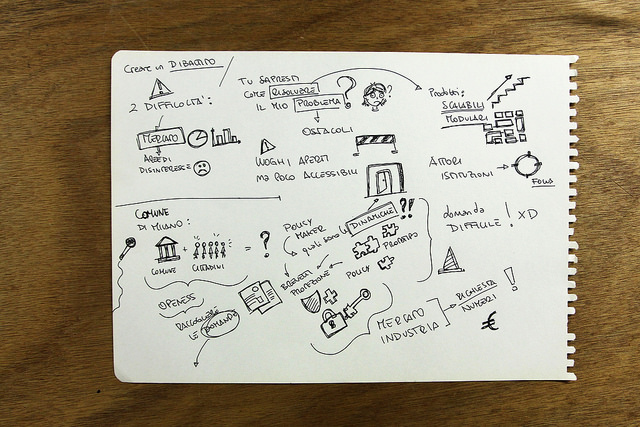 Creare un DIBATTITO
2 DIFFICOLTÀ:
MERCATO
AREE DI
DISINTERESSE
TU SAPRESTI
COME RISOLVERE
IL MIO PROBLEMA ?
OSTACOLI
LUOGHI APERTI
MA POCO ACCESSIBILI
Prodotti:
SCALABILI
MODULARI
ATTORI
ISTITUZIONI
FOCUS
COMUNE
DI MILANO:
+ = ?
COMUNE CITTADINI
OPENESS
RACCOGLIERE
LE DOMANDE
POLICY
MAKER
quali sono le DINAMICHE ?!
PROTOTIPO
POLICY
BREVETTI
PROTEZIONE
MERCATO
INDUSTRIA
RICHIESTA
NUMERI !
€
domanda
DIFFICILE ! XD